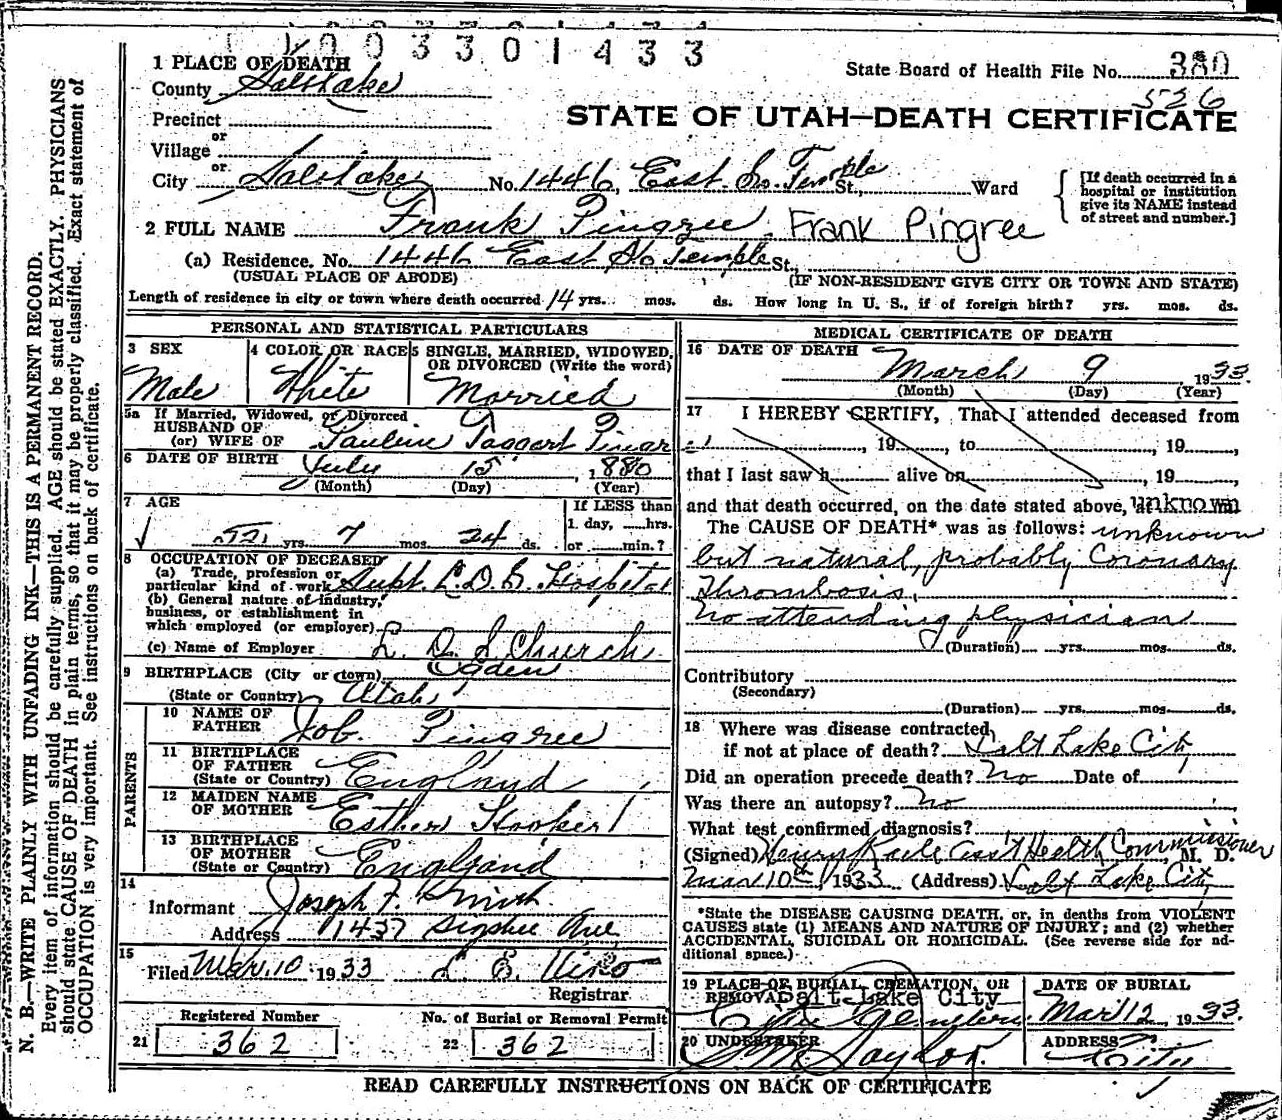 1003301433
1 PLACE OF DEATH
County Salt Lake
State Board of Health File No. 380
526
STATE OF UTAH—DEATH CERTIFICATE
Precinct
or
Village
or
City Salt Lake No. 1446, East So. Temple St., Ward
[If death occurred in a hospital or institution give its NAME instead of street and number.]
2 FULL NAME Frank Pingree Frank Pingree
(a) Residence. No. 1446 East So Temple St.,
(USUAL PLACE OF ABODE) (IF NON-RESIDENT GIVE CITY OR TOWN AND STATE)
Length of residence in city or town where death occurred 14 yrs. mos. ds. How long in U. S., if of foreign birth? yrs. mos. ds.
PERSONAL AND STATISTICAL PARTICULARS
3 SEX
Male
4 COLOR OR RACE
White
5 SINGLE, MARRIED, WIDOWED, OR DIVORCED (Write the word)
Married
5a If Married, Widowed, or Divorced
HUSBAND OF
(or) WIFE OF Pauline Taggart
6 DATE OF BIRTH July 15, 1880
(Month) (Day) (Year)
7 AGE
52 yrs. 7 mos. 24 ds.
If LESS than
1 day, hrs.
or min.?
8 OCCUPATION OF DECEASED
(a) Trade, profession or
particular kind of work Supt. L. D. S. Hospital
(b) General nature of industry,
business, or establishment in
which employed (or employer)
(c) Name of Employer L. D. S Church
9 BIRTHPLACE (City or town) Ogden
(State or Country) Utah
PARENTS
10 NAME OF
FATHER Job Pingree
11 BIRTHPLACE
OF FATHER
(State or Country) England
12 MAIDEN NAME
OF MOTHER Esther Hooker
13 BIRTHPLACE
OF MOTHER
(State or Country) England
14
Informant Joseph F. Smith
Address 1437 Ave
15
Filed Mar. 10 1933
Registrar
Registered Number
21 362
No. of Burial or Removal Permit
22 362
MEDICAL CERTIFICATE OF DEATH
16 DATE OF DEATH March 9 1933.
(Month) (Day) (Year)
17 I HEREBY CERTIFY, That I attended deceased from
, 19 , to , 19
that I last saw h alive on , 19
and that death occurred, on the date stated above, at unknown
The CAUSE OF DEATH* was as follows: unknown
but natural, probably Coronary
Thrombosis,
No attending physician
(Duration) yrs. mos. ds.
Contributory
(Secondary)
(Duration) yrs. mos. ds.
18 Where was disease contracted,
if not at place of death? Salt Lake City
Did an operation precede death? No Date of
Was there an autopsy? No
What test confirmed diagnosis?
(Signed) Ass't Health Commissioner M. D.
Mar 10th, 1933 (Address) Salt Lake City
*State the DISEASE CAUSING DEATH, or, in deaths from VIOLENT
CAUSES state (1) MEANS AND NATURE OF INJURY; and (2) whether
ACCIDENTAL, SUICIDAL OR HOMICIDAL. (See reverse side for additional space.)
19 PLACE OF BURIAL, CREMATION, OR
REMOVAL Salt Lake City
City Cemetery
DATE OF BURIAL
Mar 12, 1933.
20 UNDERTAKER
Taylor.
ADDRESS
City
READ CAREFULLY INSTRUCTIONS ON BACK OF CERTIFICATE
N. B.—WRITE PLAINLY WITH UNFADING INK—THIS IS A PERMANENT RECORD.
Every item of information should be carefully supplied. AGE should be stated EXACTLY. PHYSICIANS
should state CAUSE OF DEATH in plain terms, so that it may be properly classified. Exact statement of
OCCUPATION is very important. See instructions on back of certificate.